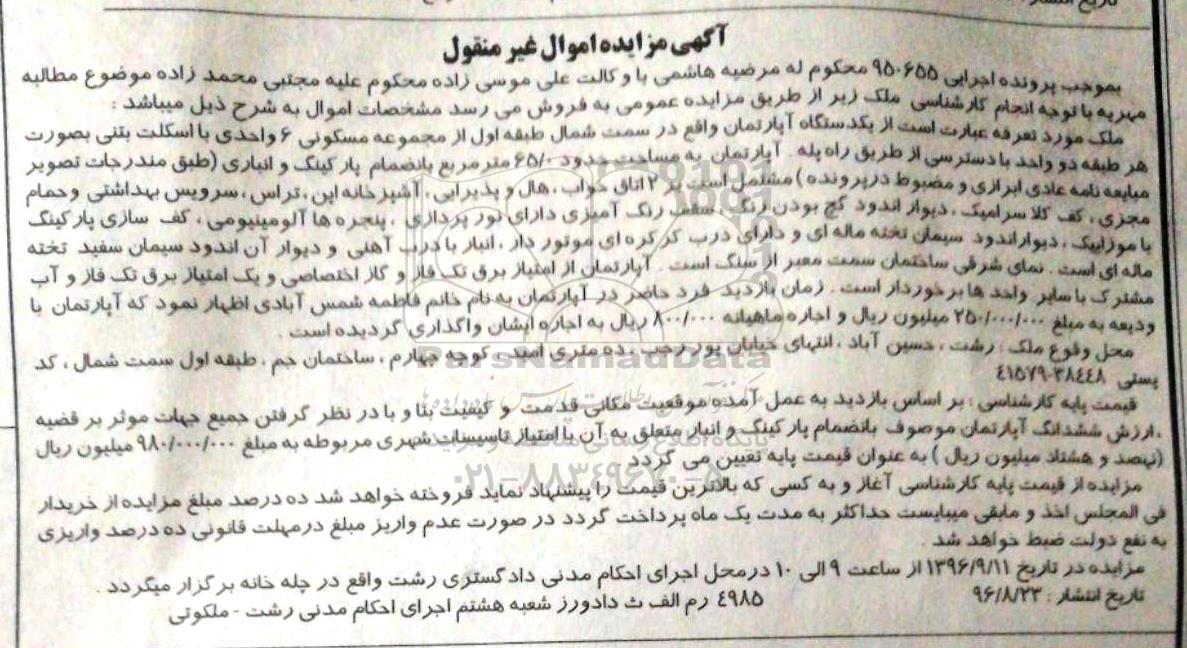 آگهی مزایده اموال غیر منقول
بموجب پرونده اجرایی ۹۵۰۶۵۵ محکوم له مرضیه هاشمی با وکالت علی موسی زاده محکوم علیه مجتبی محمد زاده موضوع مطالبه
مهریه با توجه انجام کارشناسی ملک زیر از طریق مزایده عمومی به فروش می رسد مشخصات اموال به شرح ذیل میباشد :
ملک مورد تعرفه عبارت است از یکدستگاه آپارتمان واقع در سمت شمال طبقه اول از مجموعه مسکونی ۶ واحدی با اسکلت بتنی بصورت
هر طبقه دو واحد با دسترسی از طریق راه پله . آپارتمان به مساحت حدود ۶۵/۰ متر مربع بانضمام پارکینگ و انباری (طبق مندرجات تصویر
مبایعه نامه عادی ابرازی و مضبوط در پرونده ) مشتمل است بر ۲ اتاق خواب ، هال و پذیرایی ، آشپزخانه اپن ، تراس ، سرویس بهداشتی و حمام
مجزی ، کف کلا سرامیک ، دیوار اندود گچ بودن رنگ ، سقف رنگ آمیزی دارای نور پردازی ، پنجره ها آلومینیومی ، کف سازی پارکینگ
با موزاییک ، دیوار اندود سیمان تخته ماله ای و دارای درب کرکره ای موتور دار ، انبار با درب آهنی و دیوار آن اندود سیمان سفید تخته
ماله ای است . نمای شرقی ساختمان سمت معبر از سنگ است . آپارتمان از امتیاز برق تک فاز و گاز اختصاصی و یک امتیاز برق تک فاز و آب
مشترک با سایر واحد ها برخوردار است . زمان بازدید فرد حاضر در آپارتمان به نام خانم فاطمه شمس آبادی اظهار نمود که آپارتمان با
ودیعه به مبلغ ۲۵۰/۰۰۰/۰۰۰ میلیون ریال و اجاره ماهیانه ۸۰۰/۰۰۰ ریال به اجاره ایشان واگذاری گردیده است .
محل وقوع ملک : رشت ، حسین آباد ، انتهای خیابان پور رجب ، ده متری امید ، کوچه چهارم ، ساختمان جم ، طبقه اول سمت شمال ، کد
پستی ۳۸۴۴۸-۴۱۵۷۹
قیمت پایه کارشناسی : بر اساس بازدید به عمل آمده موقعیت مکانی قدمت و کیفیت بنا و با در نظر گرفتن جمیع جهات موثر بر قضیه
، ارزش ششدانگ آپارتمان موصوف بانضمام پارکینگ و انبار متعلق به آن با امتیاز تاسیسات شهری مربوطه به مبلغ ۹۸۰/۰۰۰/۰۰۰ میلیون ریال
(نهصد و هشتاد میلیون ریال ) به عنوان قیمت پایه تعیین می گردد
مزایده از قیمت پایه کارشناسی آغاز و به کسی که بالاترین قیمت را پیشنهاد نماید فروخته خواهد شد ده درصد مبلغ مزایده از خریدار
فی المجلس اخذ و مابقی میبایست حداکثر به مدت یک ماه پرداخت گردد در صورت عدم واریز مبلغ درمهلت قانونی ده درصد واریزی
به نفع دولت ضبط خواهد شد .
مزایده در تاریخ ۱۳۹۶/۹/۱۱ از ساعت ۹ الی ۱۰ درمحل اجرای احکام مدنی دادگستری رشت واقع در چله خانه برگزار میگردد .
تاریخ انتشار : ۹۶/۸/۲۳
۴۹۸۵ رم الف ث دادورز شعبه هشتم اجرای احکام مدنی رشت - ملکوتی
ParsNamadData
۰۲۱-۸۸۳۴۹۶۷۰-۵